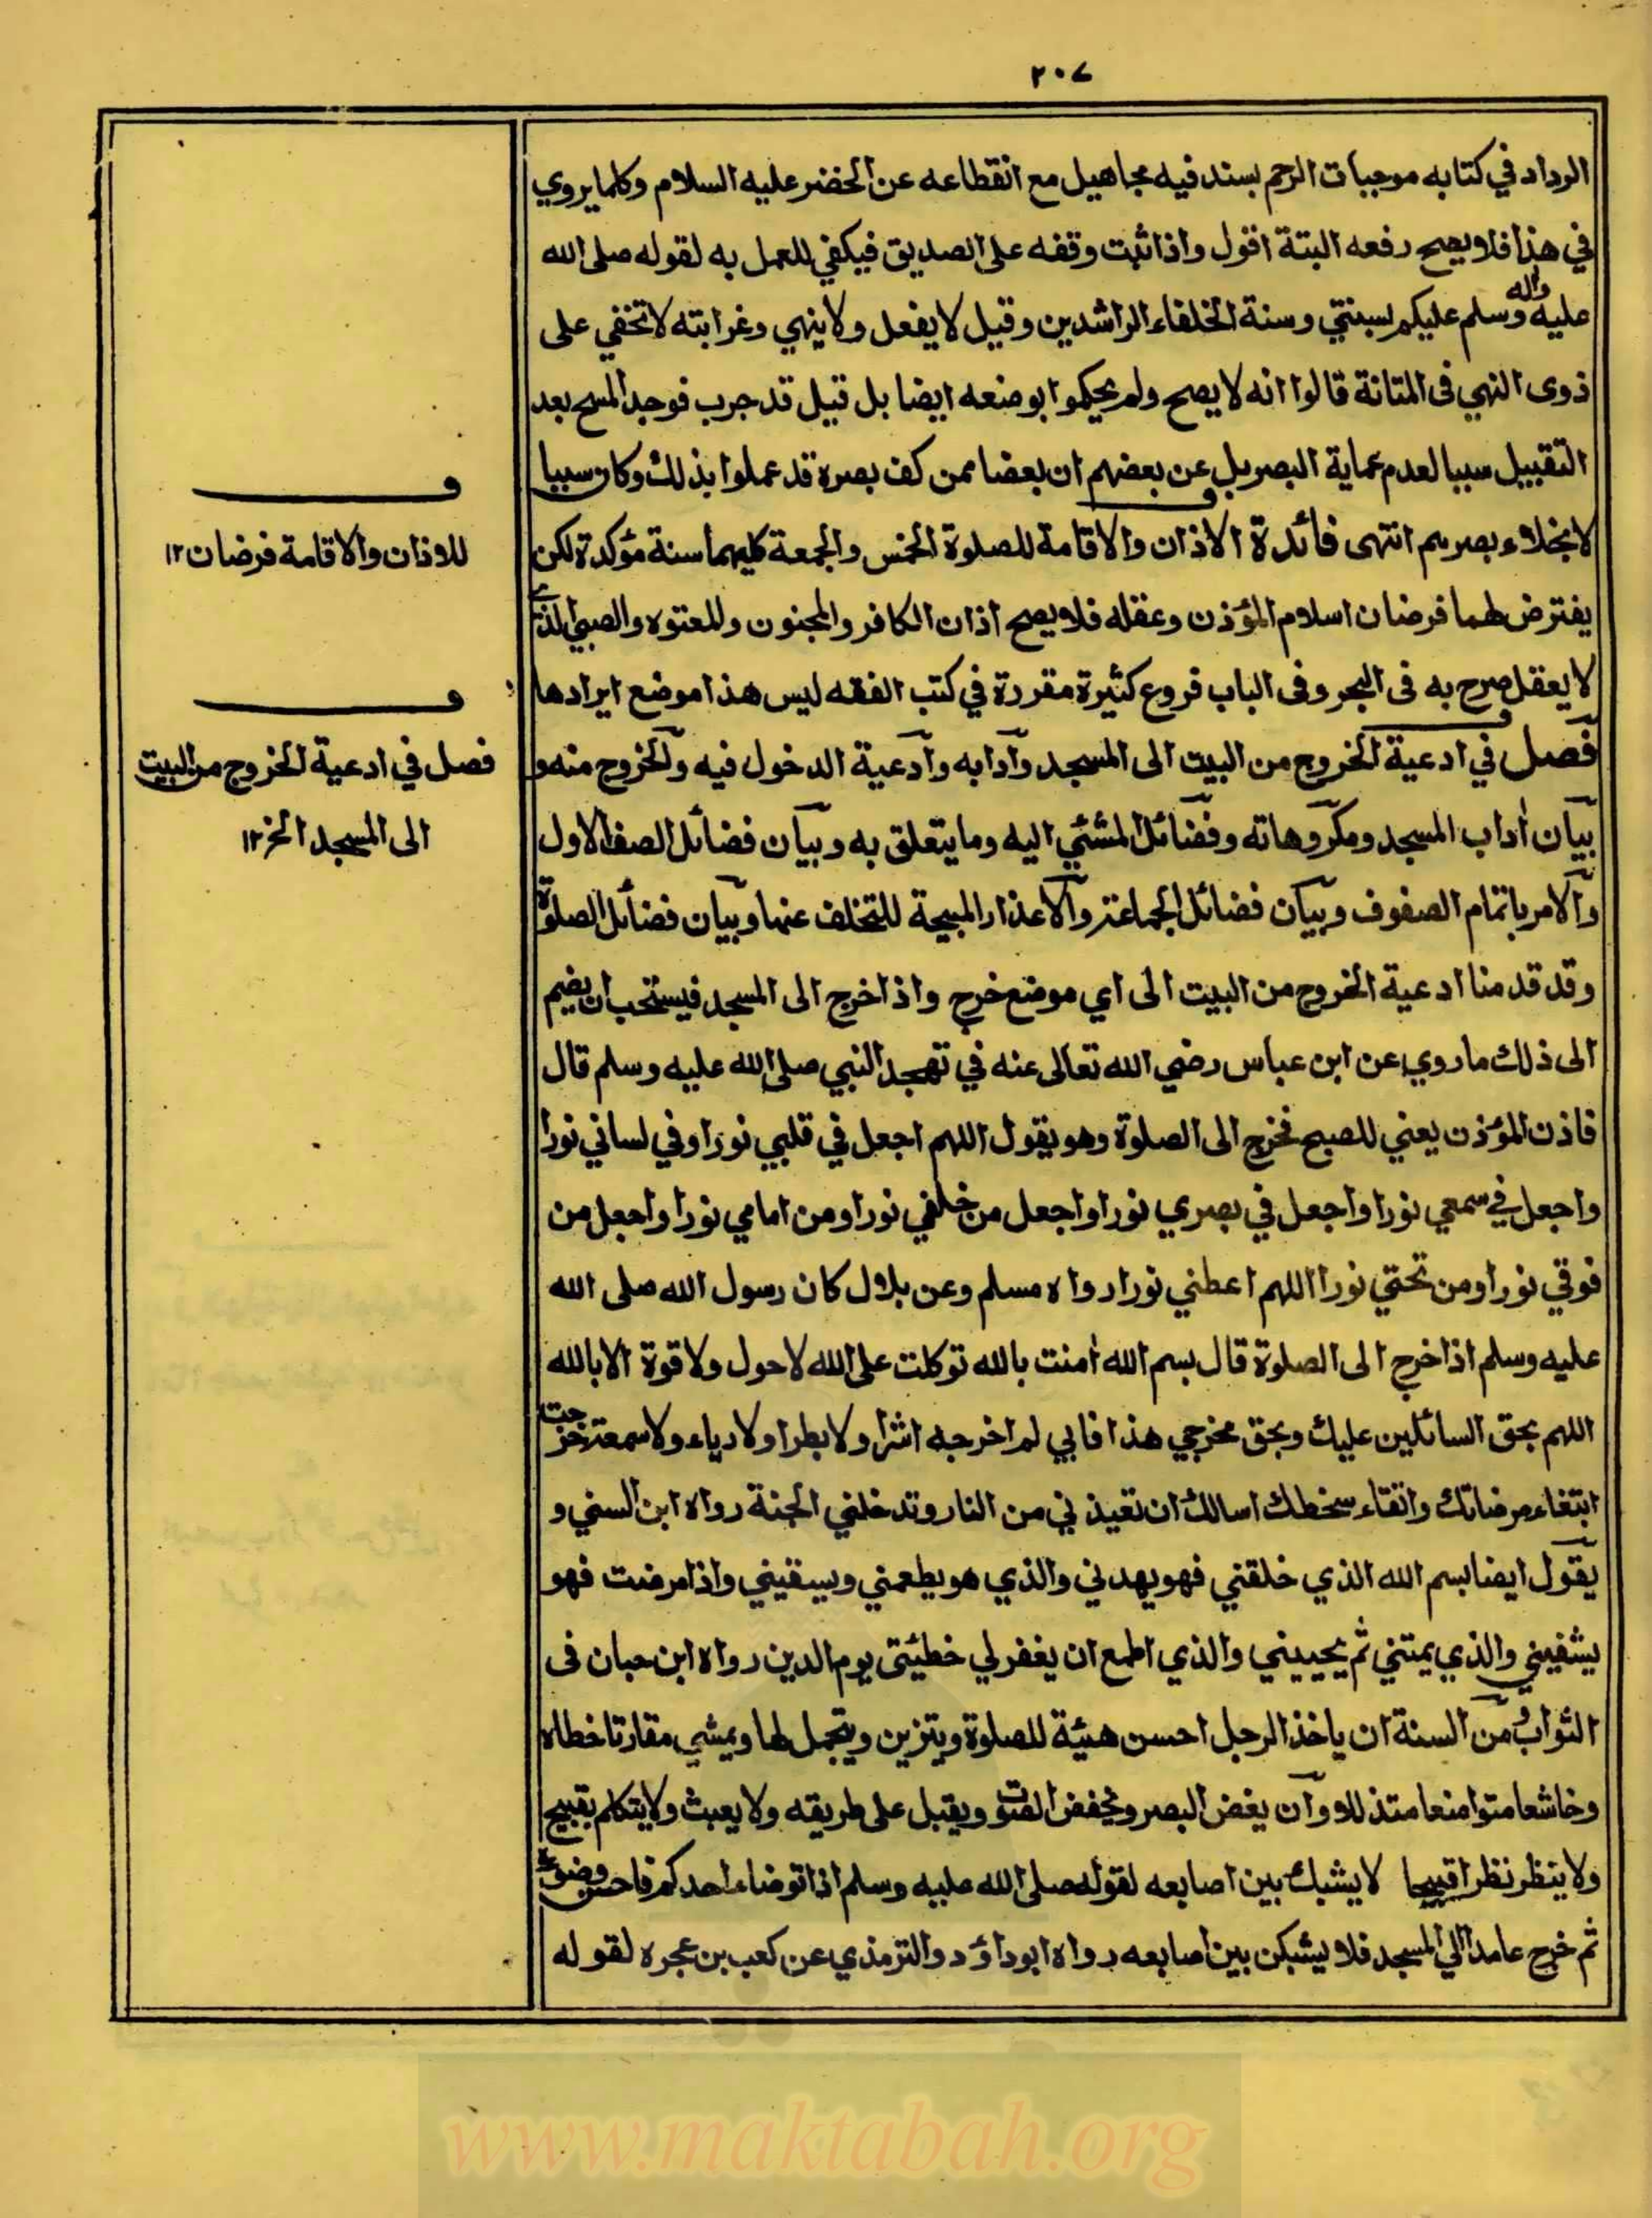 ٢٠٧
الرداد في كتابه موجبات الرحم بسند فيه مجاهيل مع انقطاعه عن الخضر عليه السلام وكلما يروي
في هذا فلا يصح رفعه البتة اقول واذا ثبت وقفه على الصديق فيكفي للعمل به لقوله صلى الله
عليه واله وسلم عليكم بسنتي وسنة الخلفاء الراشدين وقيل لا يفعل ولا ينهي وغرابته لا تخفي على
ذوى النهي فى المتانة قالوا انه لا يصح ولم يحكموا بوضعه ايضا بل قيل قد جرب فوجد المسح بعد
التقبيل سببا لعدم عماية البصر بل عن بعضهم ان بعضا ممن كف بصره قد عملوا بذلك وكان سببا
لانجلاء بصرهم انتهى فائدة الاذان والاقامة للصلوة الخمس والجمعة كليهما سنة مؤكدة لكن
يفترض لهما فرضان اسلام المؤذن وعقله فلا يصح اذان الكافر والمجنون وللمعتوه والصبي الذي
لا يعقل صرح به فى البحر وفى الباب فروع كثيرة مقررة في كتب الفقه ليس هذا موضع ايرادها
فصل في ادعية الخروج من البيت الى المسجد وآدابه وآدعية الدخول فيه والخروج منه و
بيان اداب المسجد ومكروهاته وفضائل المشئي اليه وما يتعلق به وبيان فضائل الصف الاول
والامر باتمام الصفوف وبيان فضائل الجماعة والاعذار المبيحة للتخلف عنها وبيان فضائل الصلوة
وقد قدمنا ادعية الخروج من البيت الى اي موضع خرج واذا خرج الى المسجد فيستحب ان يضم
الى ذلك ما روي عن ابن عباس رضي الله تعالى عنه في تهجد النبي صلى الله عليه وسلم قال
فاذن المؤذن يعني للصبح فخرج الى الصلوة وهو يقول اللهم اجعل في قلبي نورا وفي لساني نورا
واجعل في سمعي نورا واجعل في بصري نورا واجعل من خلفي نورا ومن امامي نورا واجعل من
فوقي نورا ومن تحتي نورا اللهم اعطني نورا رواه مسلم وعن بلال كان رسول الله صلى الله
عليه وسلم اذا خرج الى الصلوة قال بسم الله امنت بالله توكلت على الله لا حول ولا قوة الا بالله
اللهم بحق السائلين عليك وبحق مخرجي هذا فاني لم اخرجه اشرا ولا بطرا ولا رياء ولا سمعة خرجت
ابتغاء مرضاتك واتقاء سخطك اسالك ان تعيذني من النار وتدخلني الجنة رواه ابن السني و
يقول ايضا بسم الله الذي خلقني فهو يهدني والذي هو يطعمني ويسقيني واذا مرضت فهو
يشفيني والذي يمتني ثم يحييني والذي اطمع ان يغفر لي خطيئتى يوم الدين رواه ابن حبان فى
الثواب ومن السنة ان ياخذ الرجل احسن هيئة للصلوة ويتزين ويتجمل لها ويمشي مقارنا خطاه
وخاشعا متواضعا متذللا وان يغض البصر ويخفض الصوت ويقبل على طريقه ولا يعبث ولا يتكلم بقبيح
ولا ينظر نظرا قبيحا لا يشبك بين اصابعه لقوله صلى الله عليه وسلم اذا توضاء احدكم فاحسن وضوءه
ثم خرج عامدا الي المسجد فلا يشبكن بين اصابعه رواه ابوداؤد والترمذي عن كعب بن عجره لقوله
للاذان والاقامة فرضان ١٢
فصل في ادعية الخروج من البيت
الى المسجد الخ ١٢
www.maktabah.org